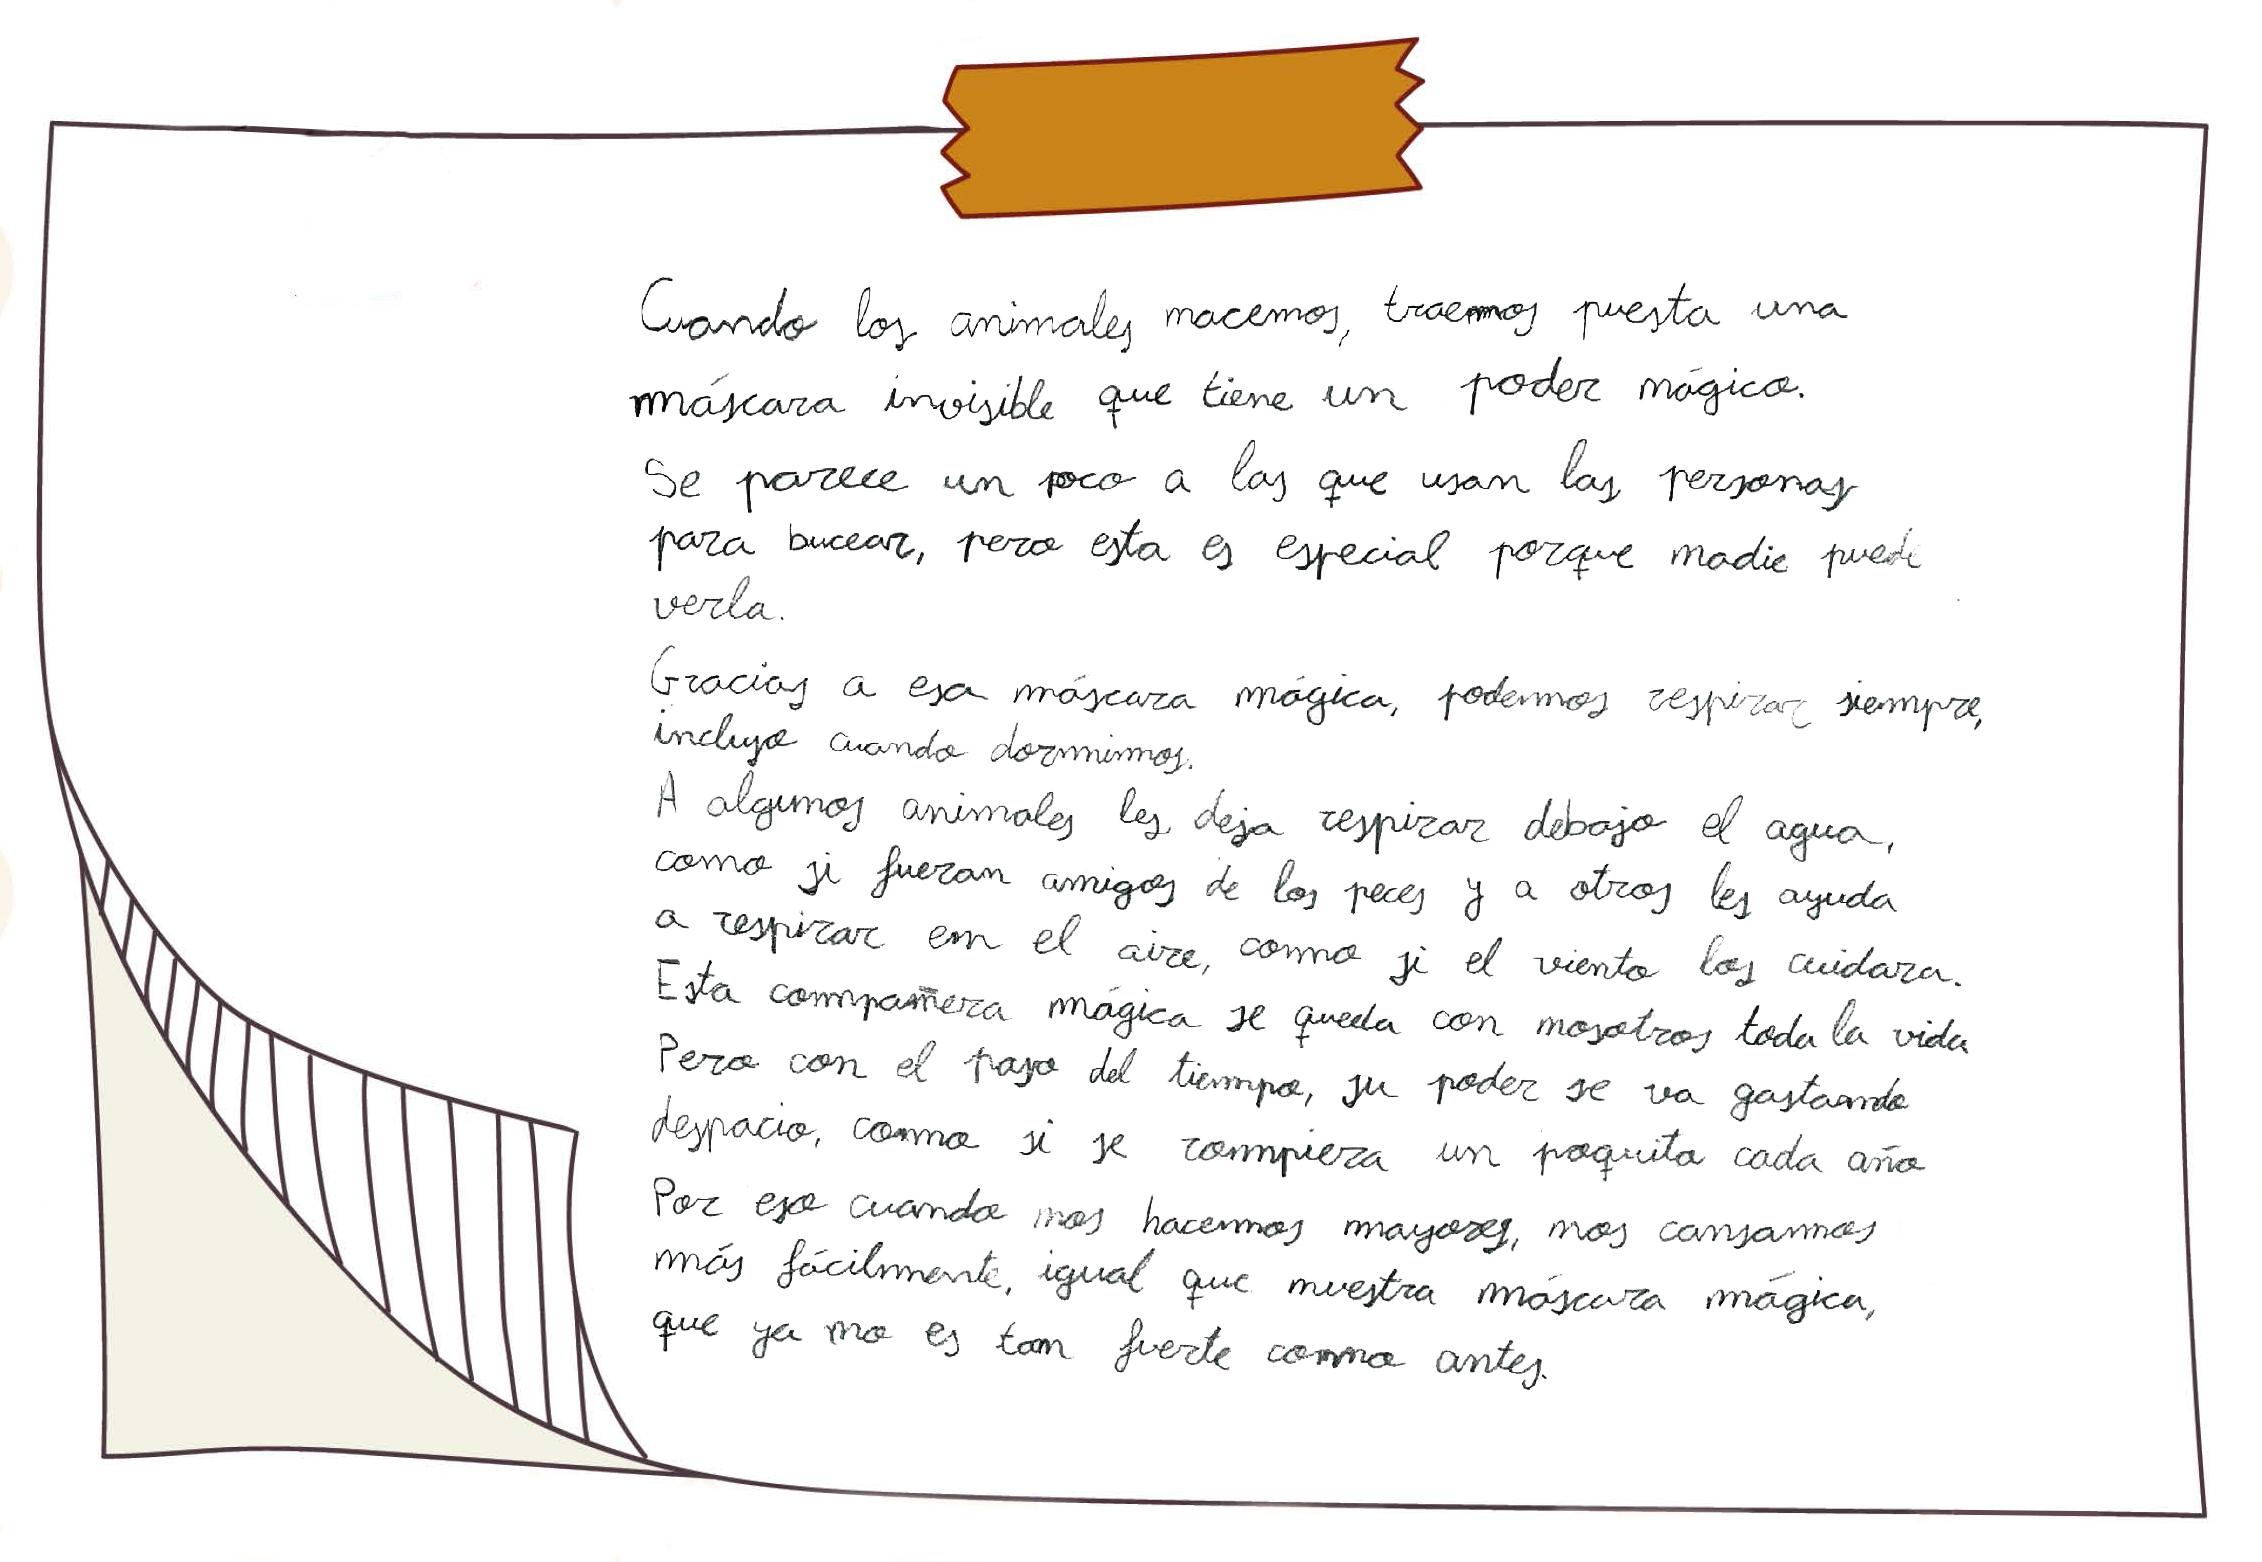 Cuando los animales nacemos, traemos puesta una
máscara invisible que tiene un poder mágico.
Se parece un poco a las que usan las personas
para bucear, pero esta es especial porque nadie puede
verla.
Gracias a esa máscara mágica, podemos respirar siempre,
incluso cuando dormimos.
A algunos animales les deja respirar debajo el agua,
como si fueran amigos de los peces y a otros les ayuda
a respirar en el aire, como si el viento los cuidara.
Esta compañera mágica se queda con nosotros toda la vida
Pero con el paso del tiempo, su poder se va gastando
despacio, como si se rompiera un poquito cada año
Por eso cuando nos hacemos mayores, nos cansamos
más fácilmente, igual que nuestra máscara mágica,
que ya no es tan fuerte como antes.